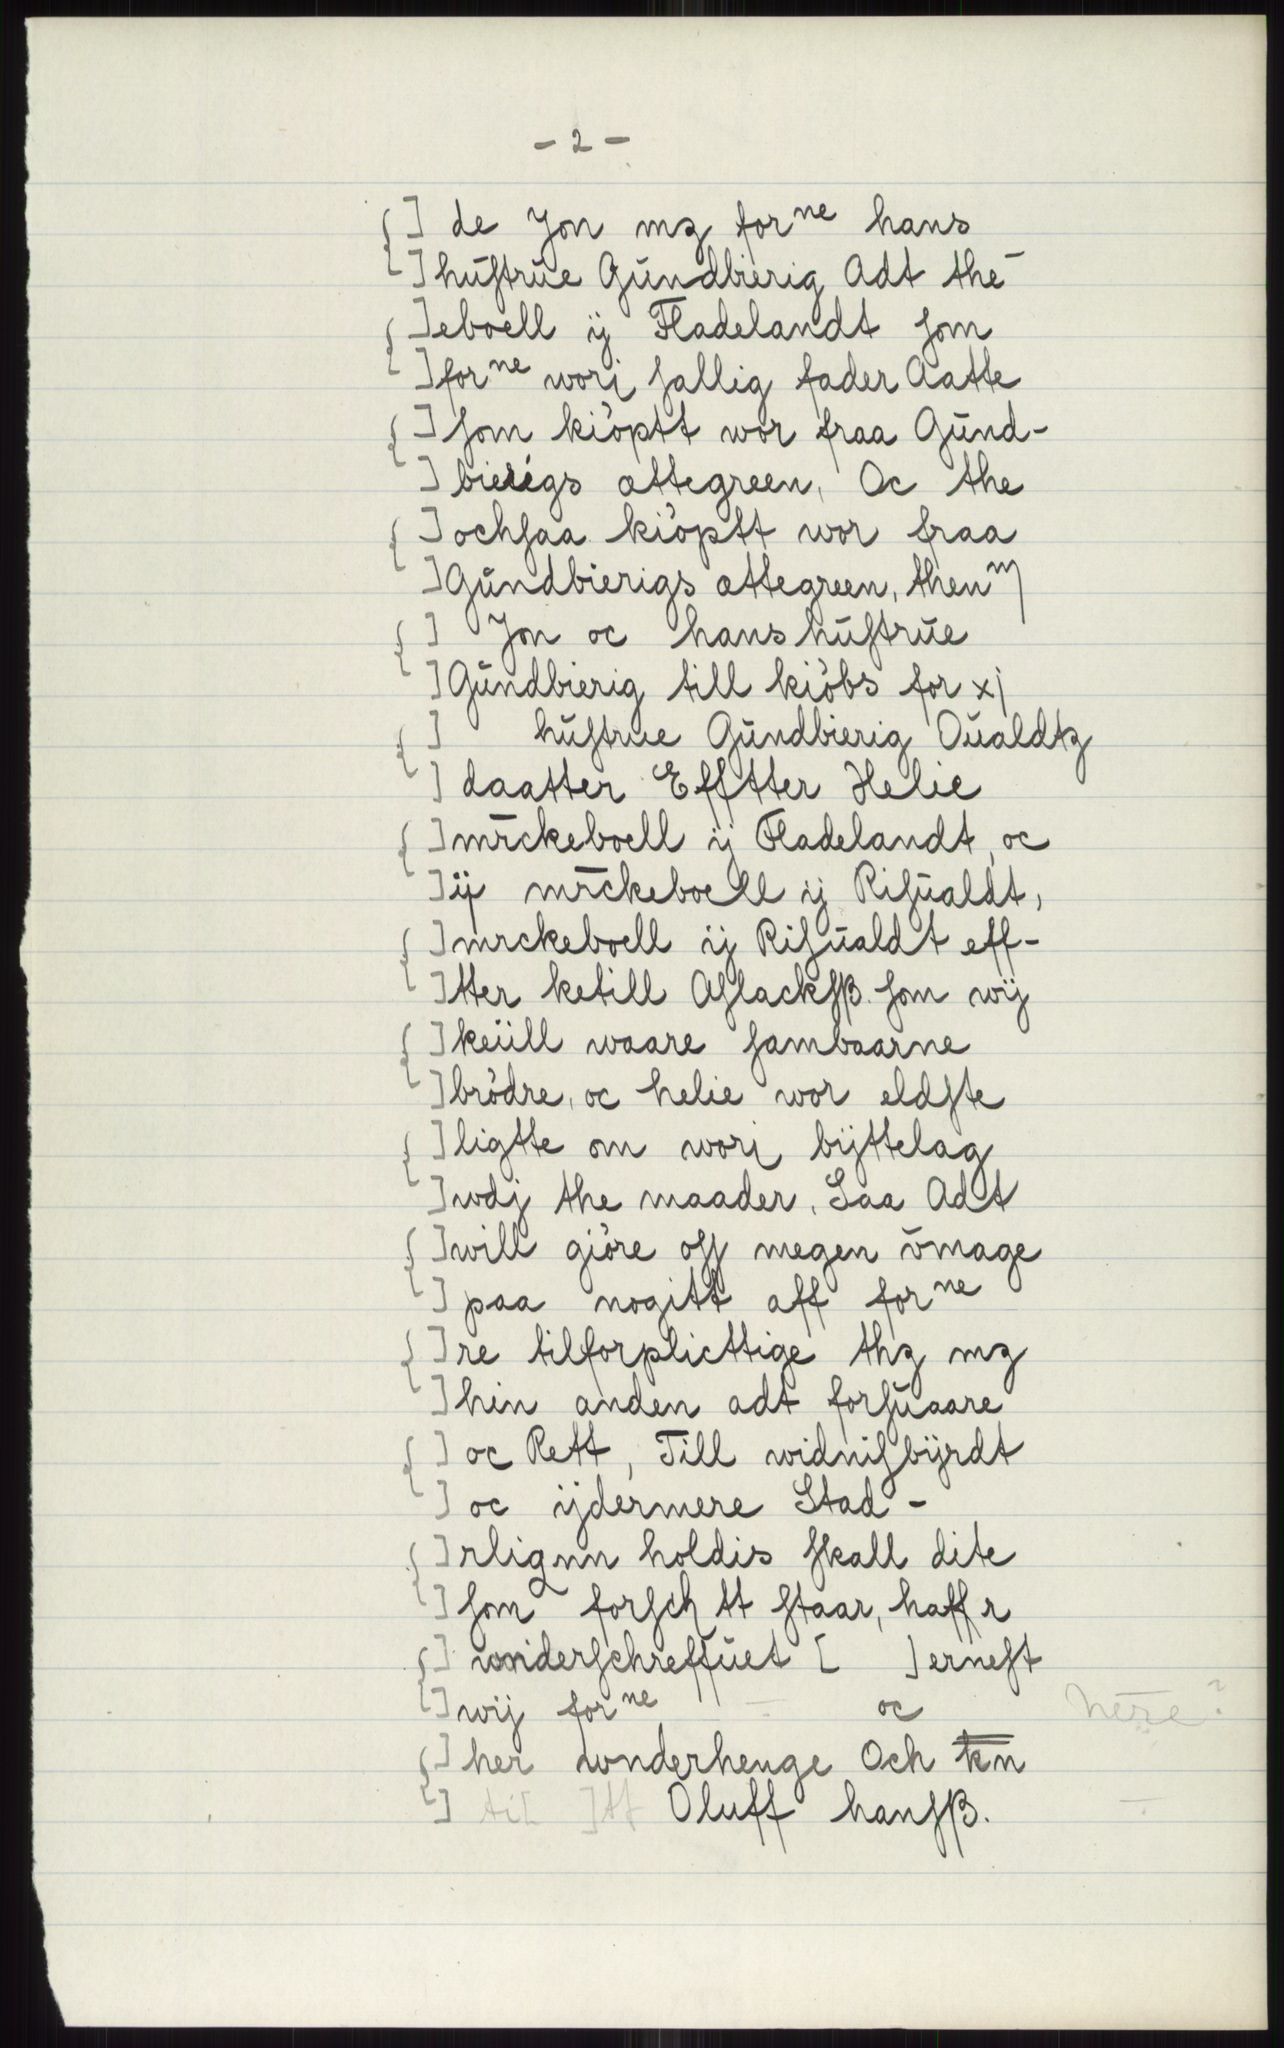 - 2 -
] de Jon mz forne hans
] huſtrŭe Gŭndbierig Adt thē
] eboell ij Fladelandt ſom
] forne worj ſallig fader Aatte
] ſom kiöptt wor fraa Gŭnd-
] bierigs attegreen, Oc the
] ochſaa kiöptt wor fraa
] Gŭndbierigs attegreen, thenm
] Jon oc hans hŭſtrŭe
] Gŭndbierig till kiöbs for xj
] hŭſtrue Gŭndbierig Oŭaldtz
] daatter Efftter Helie
] mr̄ckeboell ij Fladelandt, oc
] ij mr̄ckeboell ij Riſŭaldt,
] mrckeboell ij Riſŭaldt eff-
] tter ketill Aſlackſβ. ſom wij
] keiill waare ſambaarne
] brödre, oc helie wor eldſte
] ligtte om worj bÿttelag
] wdj the maader. Saa Adt
] will giöre oſſ megen v̄mage
] paa nogitt aff forne
] re tilforplicttige thz mz
] hin anden adt forſŭaare
] oc Rett, Till widniſbÿrdt
] oc ijdermere Stad-
] rlignn holdis ſkall dite
] ſom forſch tt ſtaar, haffr
] wnderſchreffŭet [ ] erneſt
] wij forne oc here?
] her wnderhenge Och kn
] ti[ ]tt Oluff hanſβ.